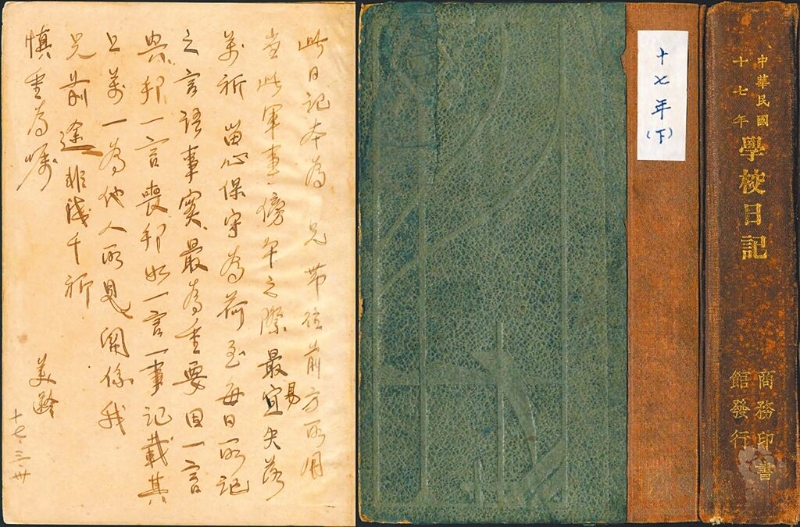 此日記本為 兄帶往前方所用
當此軍事傍午之際最宜易失落
萬祈 留心保守為荷至每日所記
之言語事實最為重要因一言
興邦一言喪邦如一言一事記載其
上萬一為他人所見關係我
兄前途非淺千祈
慎重為囑
美齡
十七、三、卅
十七年(下)
中華民國
十七年
學校日記
商務印書
館發行